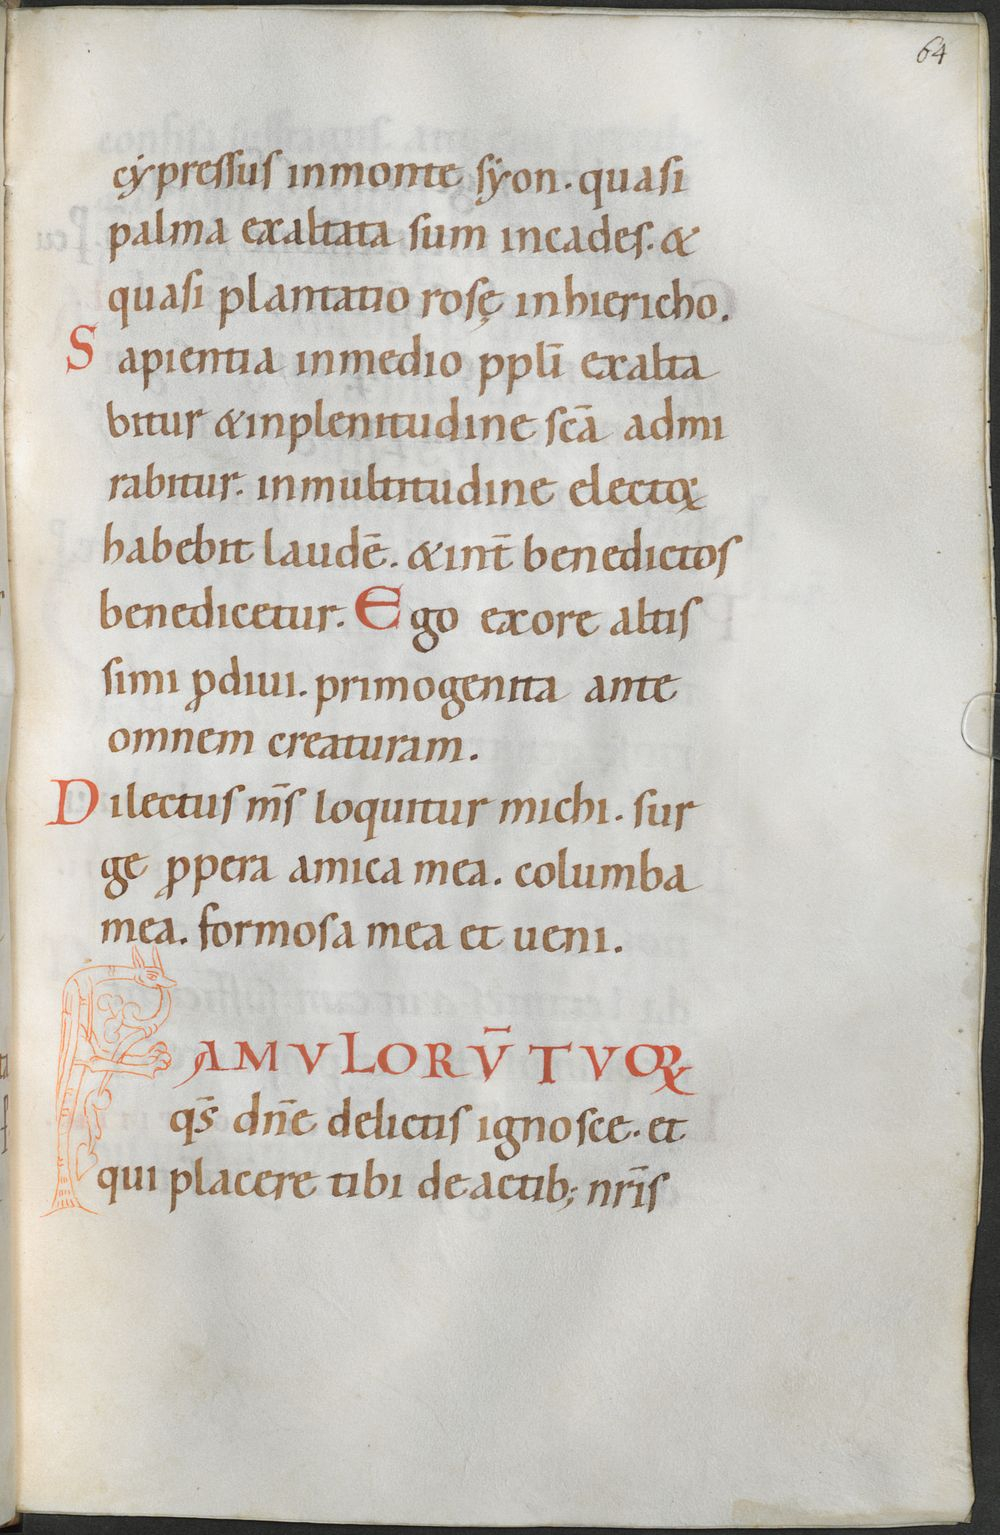 64
cẏpressus inmonte sẏon. quasi
palma exaltata sum incades. &
quasi plantatio rosę inhiericho.
Sapientia inmedio ppłi exalta
bitur &inplenitudine scā admi
rabitur. inmultitudine electoꝝ
habebit laudē. &int̄ benedictos
benedicetur. Ego exore altis
simi ꝓdiui. primogenita ante
omnem creaturam.
Dilectus m̄s loquitur michi. sur
ge ꝓpera amica mea. columba
mea. formosa mea et ueni.
FAMVLORV̄ TVOꝝ
qs̄ dn̄e delictis ignosce. et
qui placere tibi deactib; nr̄is